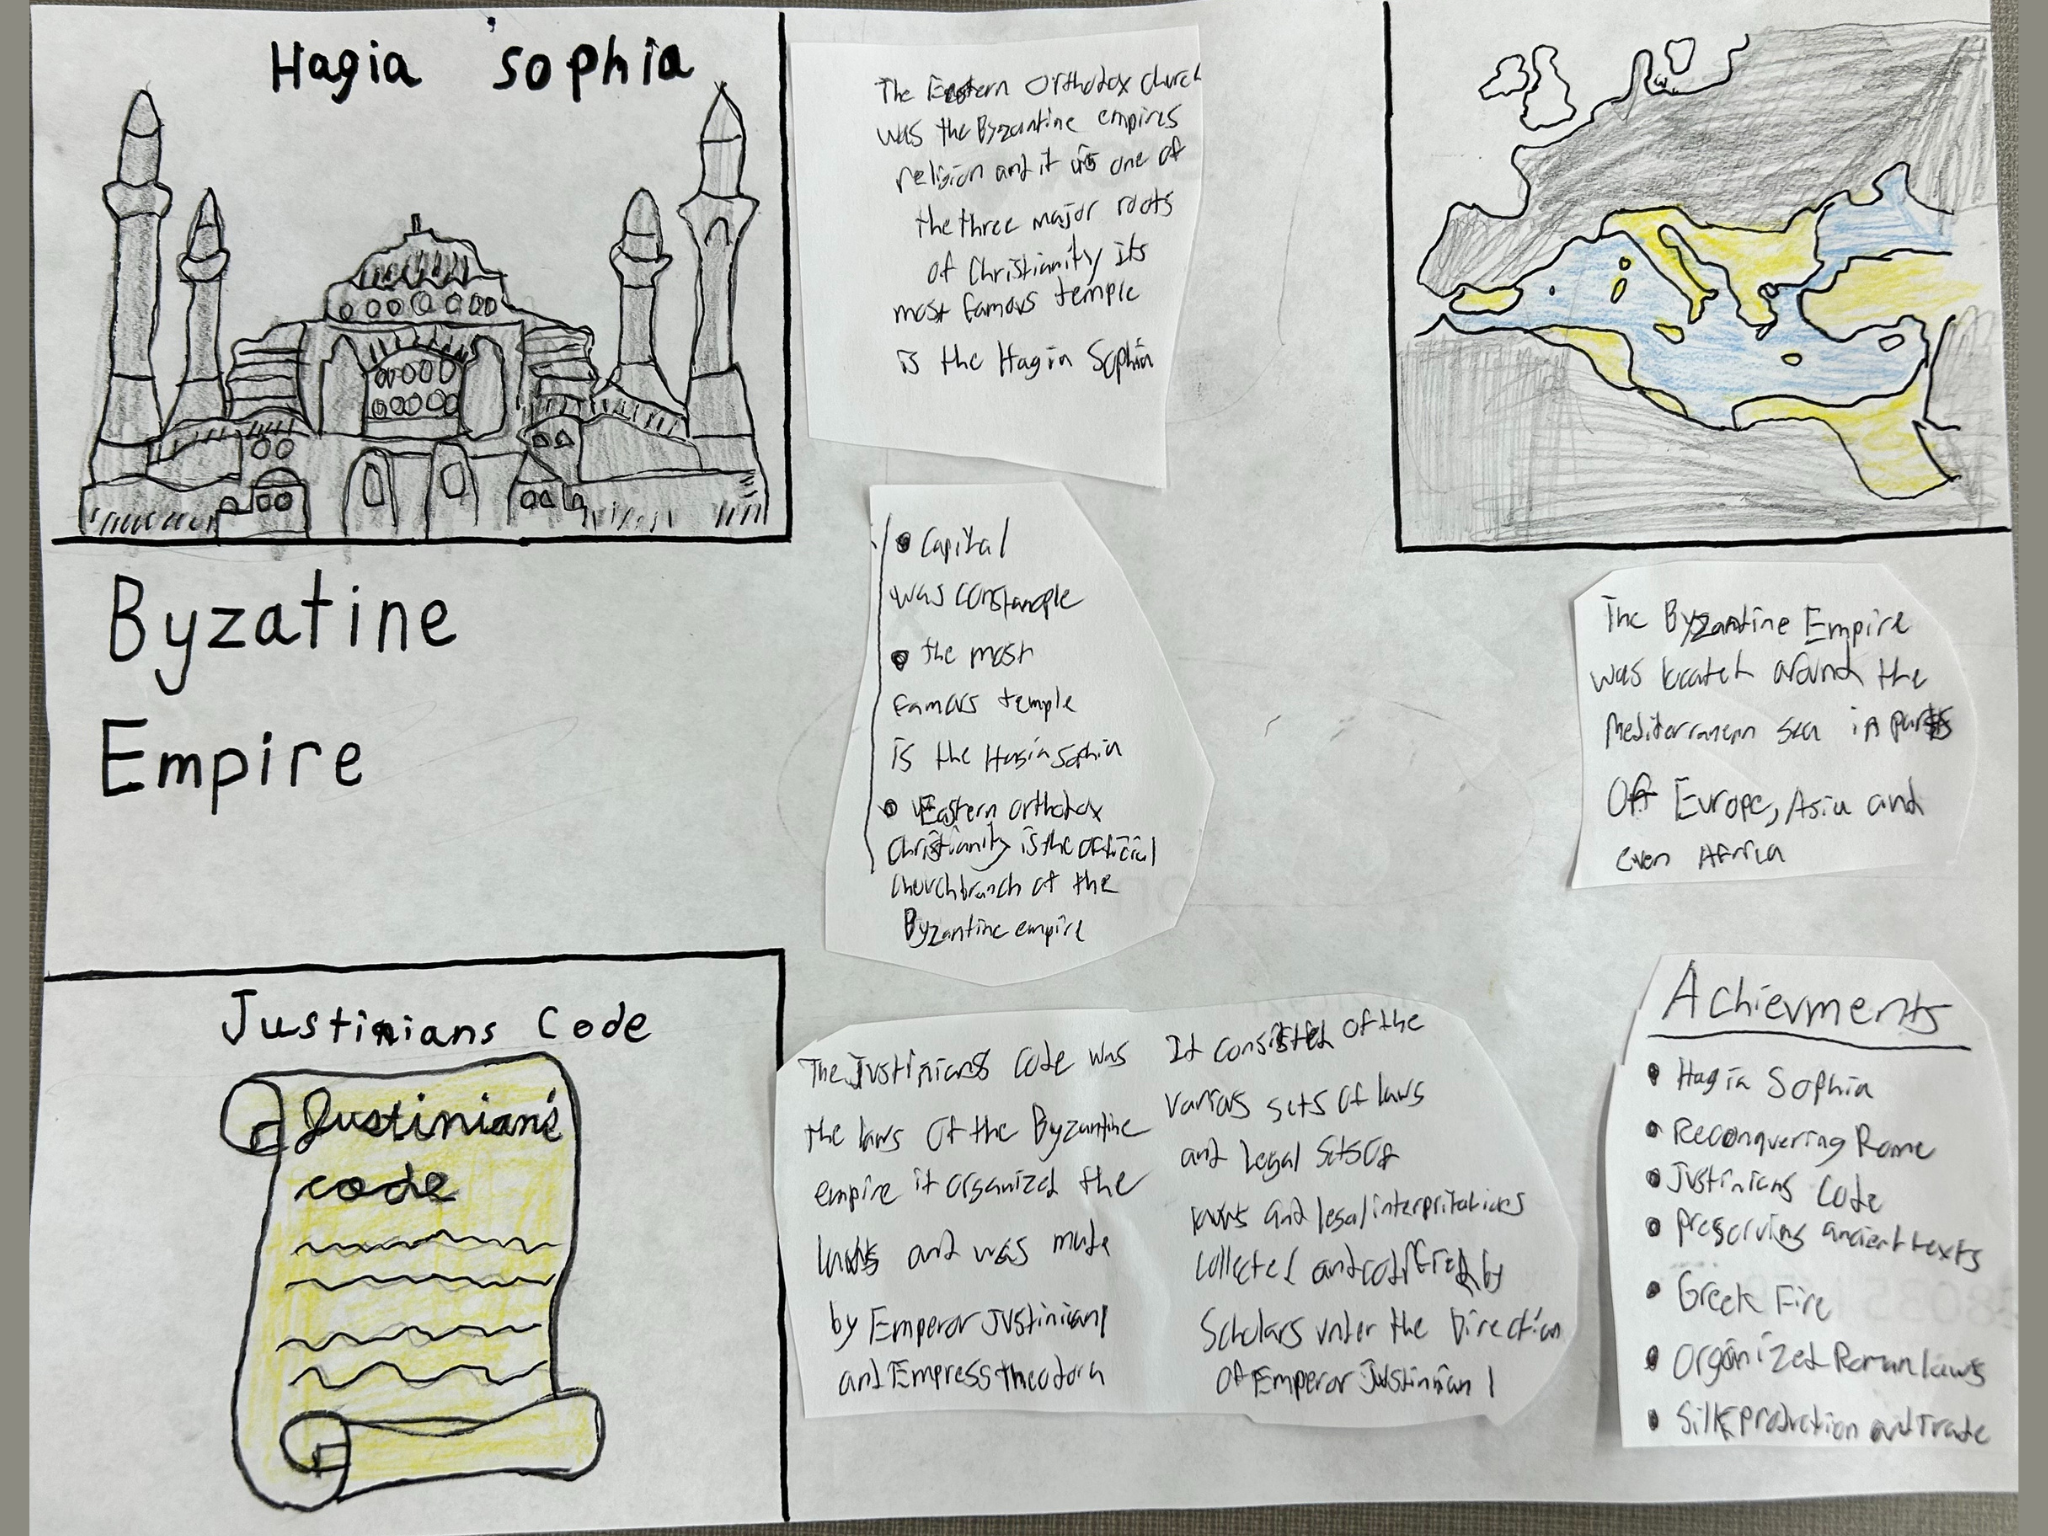 Hagia Sophia
The Eastern Orthodox church
was the Byzantine empires
religion and it is one of
the three major roots
of Christianity its
most famous temple
is the Hagia Sophia
Byzatine
Empire
Capital
was constanople
the most
famous temple
is the Hagia Sophia
Eastern orthodox
Christianity is the official
church branch of the
Byzantine empire
The Byzantine Empire
was located around the
Mediterranean sea in parts
Of Europe, Asia and
even Africa
Justinians Code
Justinian's
code
The Justinians code was
the laws Of the Byzantine
empire it organized the
laws and was made
by Emperor Justinian
and Empress theodora
It consisted of the
various sets of laws
and legal sets of
laws and legal interpritations
collected and codified by
Scholars under the Direction
of Emperor Justinian I
Achievments
Hagia Sophia
Reconquering Rome
Justinians Code
preserving ancient texts
Greek Fire
Organized Roman laws
Silk production and Trade